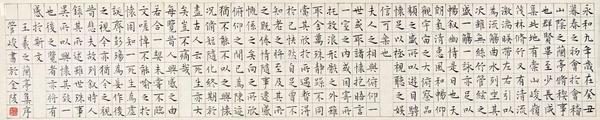 永和九年歲在癸丑
暮春之初會於會稽
山陰之蘭亭脩稧事
也群賢畢至少長咸
集此地有崇山峻領
茂林脩竹又有清流
激湍暎帶左右引以
為流觴曲水列坐其
次雖無絲竹管絃之
盛一觴一詠亦足以
暢敘幽情是日也天
朗氣清惠風和暢仰
觀宇宙之大俯察品
類之盛所以遊目騁
懷足以極視聽之娛
信可樂也
夫人之相與俯仰一
世或取諸懷抱悟言
一室之內或因寄所
託放浪形骸之外雖
趣舍萬殊靜躁不同
當其欣於所遇暫得
於己快然自足不知
老之將至及其所之
既惓情隨事遷感慨
係之矣向之所欣俛
仰之間以為陳跡
猶不能不以之興懷
況脩短隨化終期於
盡古人云死生亦大
矣豈不痛哉
每覽昔人興感之由
若合一契未嘗不臨
文嗟悼不能喻之於
懷固知一死生為虛
誕齊彭殤為妄作後
之視今亦由今之視
昔悲夫故列敘時人
錄其所述雖世殊事
異所以興懷其致一
也後之覽者亦將有
感於斯文
王羲之蘭亭集序
管峻書於金陵